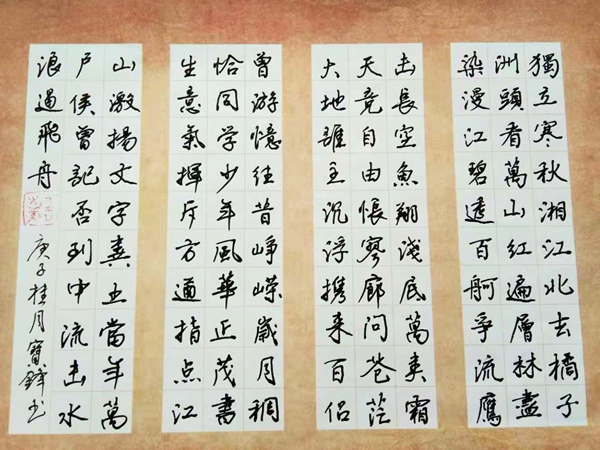 獨立寒秋湘江北去橘子
洲頭看萬山紅遍層林盡
染漫江碧透百舸爭流鷹
击長空魚翔淺底萬类霜
天竞自由悵廖廓问苍茫
大地誰主沉浮携来百侣
曾游憶往昔崢嶸歲月稠
恰同学少年風華正茂書
生意氣揮斥方遒指点江
山激揚文字糞土當年萬
户侯曾記否到中流击水
浪遏飛舟
庚子桂月寶鋒书